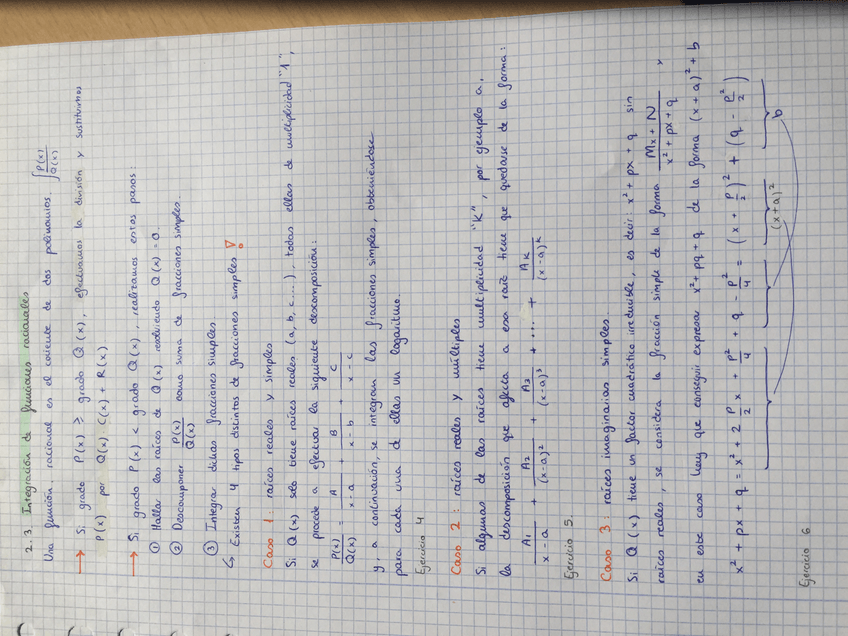 2.3. Integración de funciones racionales
Una función racional es el cociente de dos polinomios. ∫ P(x)/Q(x)
→ Si grado P(x) ≥ grado Q(x), efectuamos la división y sustituimos
P(x) por Q(x)·C(x) + R(x)
→ Si grado P(x) < grado Q(x), realizamos estos pasos:
① Hallar las raíces de Q(x) resolviendo Q(x) = 0.
② Descomponer P(x)/Q(x) como suma de fracciones simples.
③ Integrar dichas fracciones simples.
↳ Existen 4 tipos distintos de fracciones simples !
Caso 1: raíces reales y simples
Si Q(x) solo tiene raíces reales (a, b, c...), todas ellas de multiplicidad "1",
se procede a efectuar la siguiente descomposición:
P(x)/Q(x) = A/(x-a) + B/(x-b) + C/(x-c)
y, a continuación, se integran las fracciones simples, obteniéndose
para cada una de ellas un logaritmo.
Ejercicio 4
Caso 2: raíces reales y múltiples
Si algunas de las raíces tiene multiplicidad "K", por ejemplo a,
la descomposición que afecta a esa raíz tiene que quedarse de la forma:
A1/(x-a) + A2/(x-a)² + A3/(x-a)³ + ... + AK/(x-a)^K
Ejercicio 5.
Caso 3: raíces imaginarias simples.
Si Q(x) tiene un factor cuadrático irreducible, es decir: x² + px + q sin
raíces reales, se considera la fracción simple de la forma (Mx + N)/(x² + px + q) y
en este caso hay que conseguir expresar x² + pq + q de la forma (x + a)² + b
x² + px + q = x² + 2 p/2 x + p²/4 + q - p²/4 = (x + p/2)² + (q - p²/2)
(x+a)² b
Ejercicio 6